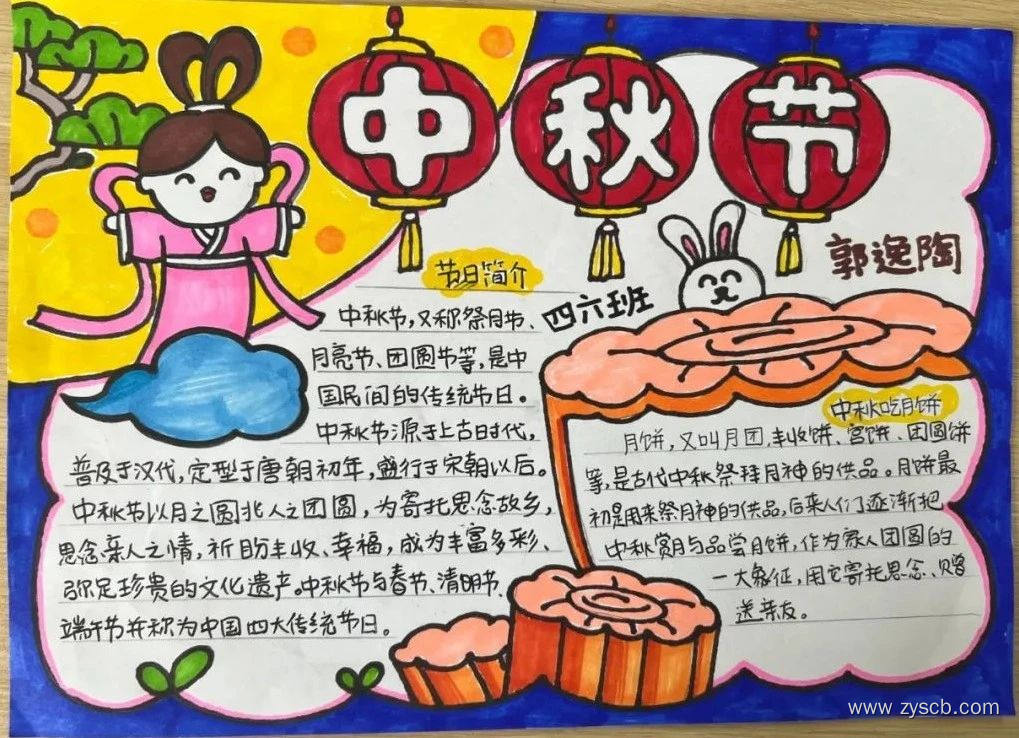 中秋节
郭逸陶
四六班
节日简介
中秋节,又称祭月节、
月亮节、团圆节等,是中
国民间的传统节日。
中秋节源于上古时代,
普及于汉代,定型于唐朝初年,盛行于宋朝以后。
中秋节以月之圆兆人之团圆,为寄托思念故乡,
思念亲人之情,祈盼丰收、幸福,成为丰富多彩、
弥足珍贵的文化遗产。中秋节与春节、清明节、
端午节并称为中国四大传统节日。
中秋吃月饼
月饼,又叫月团,丰收饼、宫饼、团圆饼
等,是古代中秋祭拜月神的供品。月饼最
初是用来祭月神的供品,后来人们逐渐把
中秋赏月与品尝月饼,作为家人团圆的
一大象征,用它寄托思念、赠
送亲友。
www.zyscb.com